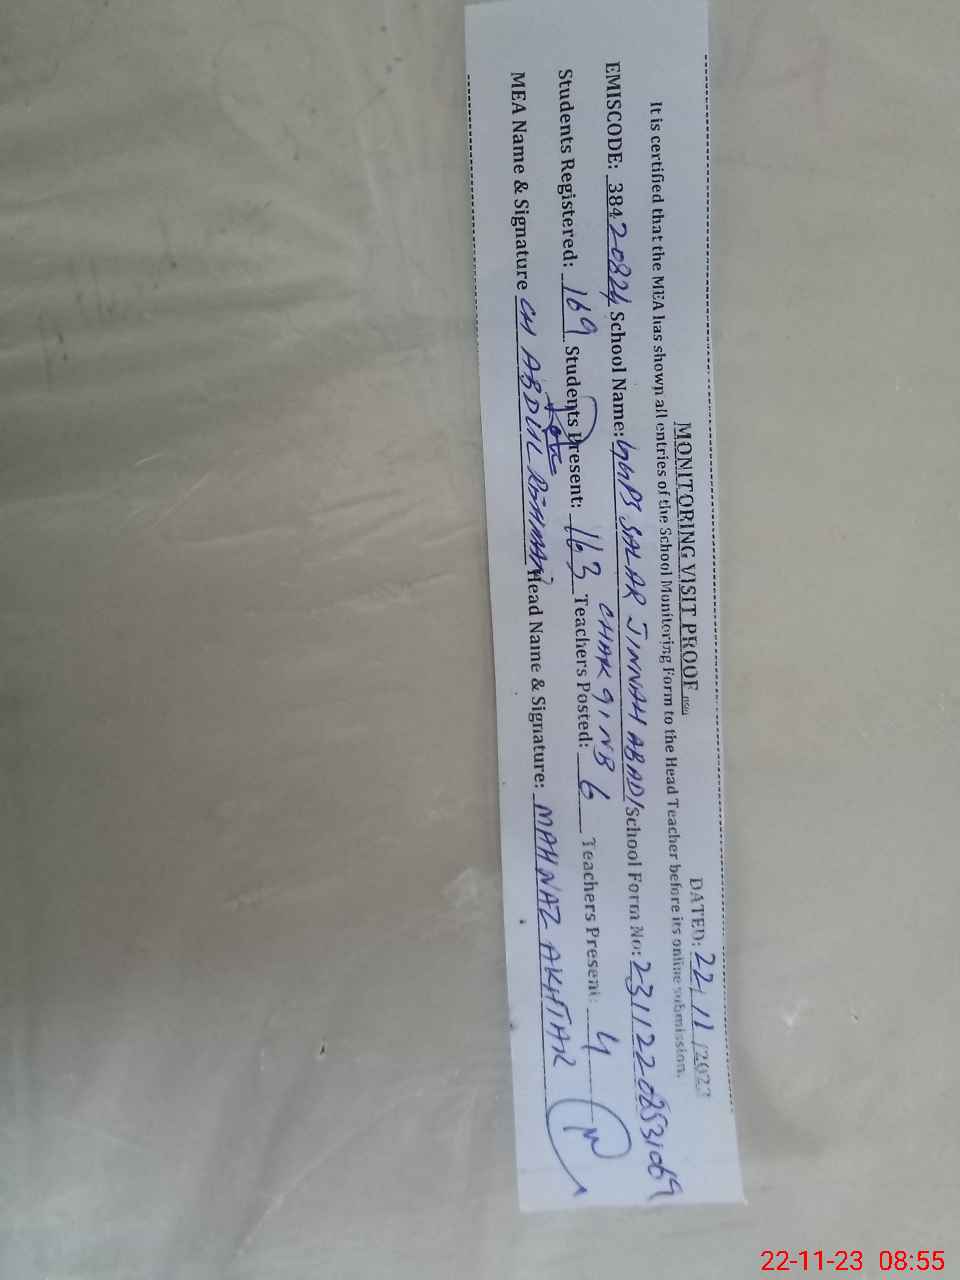 MONITORING VISIT PROOF
DATED: 22/11/2023
It is certified that the MEA has shown all entries of the School Monitoring Form to the Head Teacher before its online submission.
EMISCODE: 38420824 School Name: GGPS SALAR JINNAH ABAD/ School Form No: 23112208531069
CHAK 91 NB
Students Registered: 169 Students Present: 163 Teachers Posted: 6 Teachers Present: 4
MEA Name & Signature CH ABDUL REHMAN Head Name & Signature: MAHNAZ AKHTAR
22-11-23 08:55